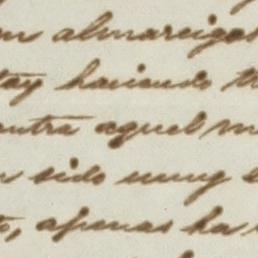 en almarcigas
tay haciendo
contra aquel
sido muy
to, apenas ha